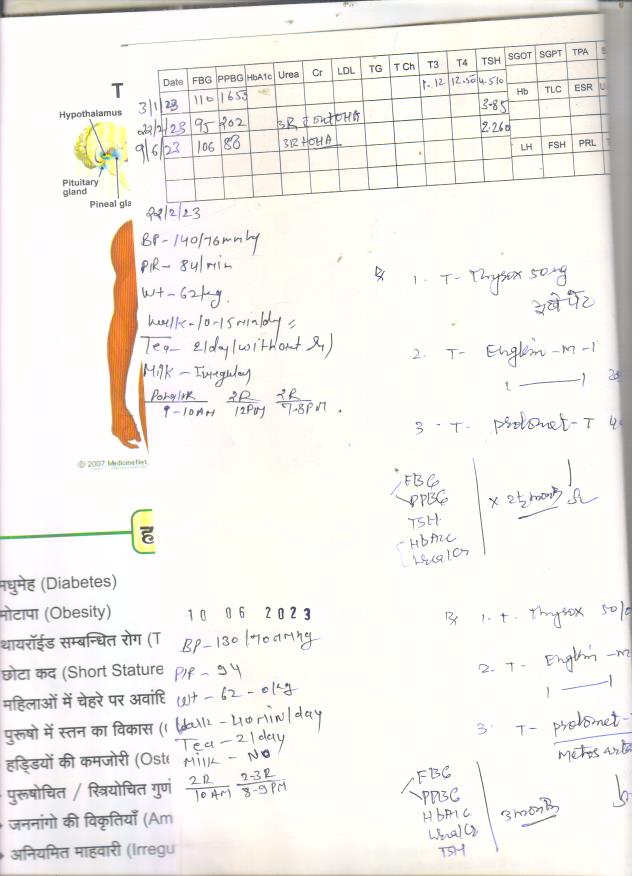 T
Date FBG PPBG HbA1c Urea Cr LDL TG T Ch T3 T4 TSH SGOT SGPT TPA
3/1/23 110 1.12 12.50 4.510
Hb TLC ESR
22/2/23 95 202 3.85
9/6/23 106 88 2.260
LH FSH PRL
Hypothalamus
Pituitary
gland
Pineal gla
22/2/23
BP - 140/76 mmHg
P/R - 84/min
Wt - 62 kg.
Walk - 10-15 min/dy
Tea - 2/day (without
Milk - Irregular
9-10 AM 2R 12PM 2R 7-8PM
Rx 1. T- Thyrox 50mg
2. T- -M-1
1 1
3. T- -T
FBG
PPBG
TSH
HbA1c
Urea/Cr
x 2½ month
© 2007 MedicineNet.
ह
मधुमेह (Diabetes)
मोटापा (Obesity)
थायरॉईड सम्बन्धित रोग (T
छोटा कद (Short Stature
महिलाओं में चेहरे पर अवांछि
पुरूषो में स्तन का विकास (
हड्डियों की कमजोरी (Oste
पुरूषोचित / स्त्रियोचित गुणं
जननांगो की विकृतियाँ (Am
अनियमित माहवारी (Irregu
10 06 2023
BP - 130/70 mmHg
P/R - 94
Wt - 62.0 kg
Walk - 40 min/day
Tea - 2/day
Milk - No
2R 10 AM 2-3R 8-9 PM
Rx 1. T. Thyrox 50
2. T- -M
1 1
3. T-
FBG
PPBG
HbA1c
Urea/Cr
TSH
3 month